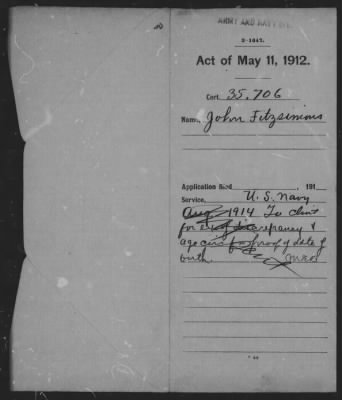 ARMY AND NAVY DIV.
3-1647.
Act of May 11, 1912.
Cert. 35,706
Name, John Fitzsimmis
Application filed , 191
Service, U. S. Navy
Aug. 1914 To clmt
for discrepancy &
age proof of date of
birth.